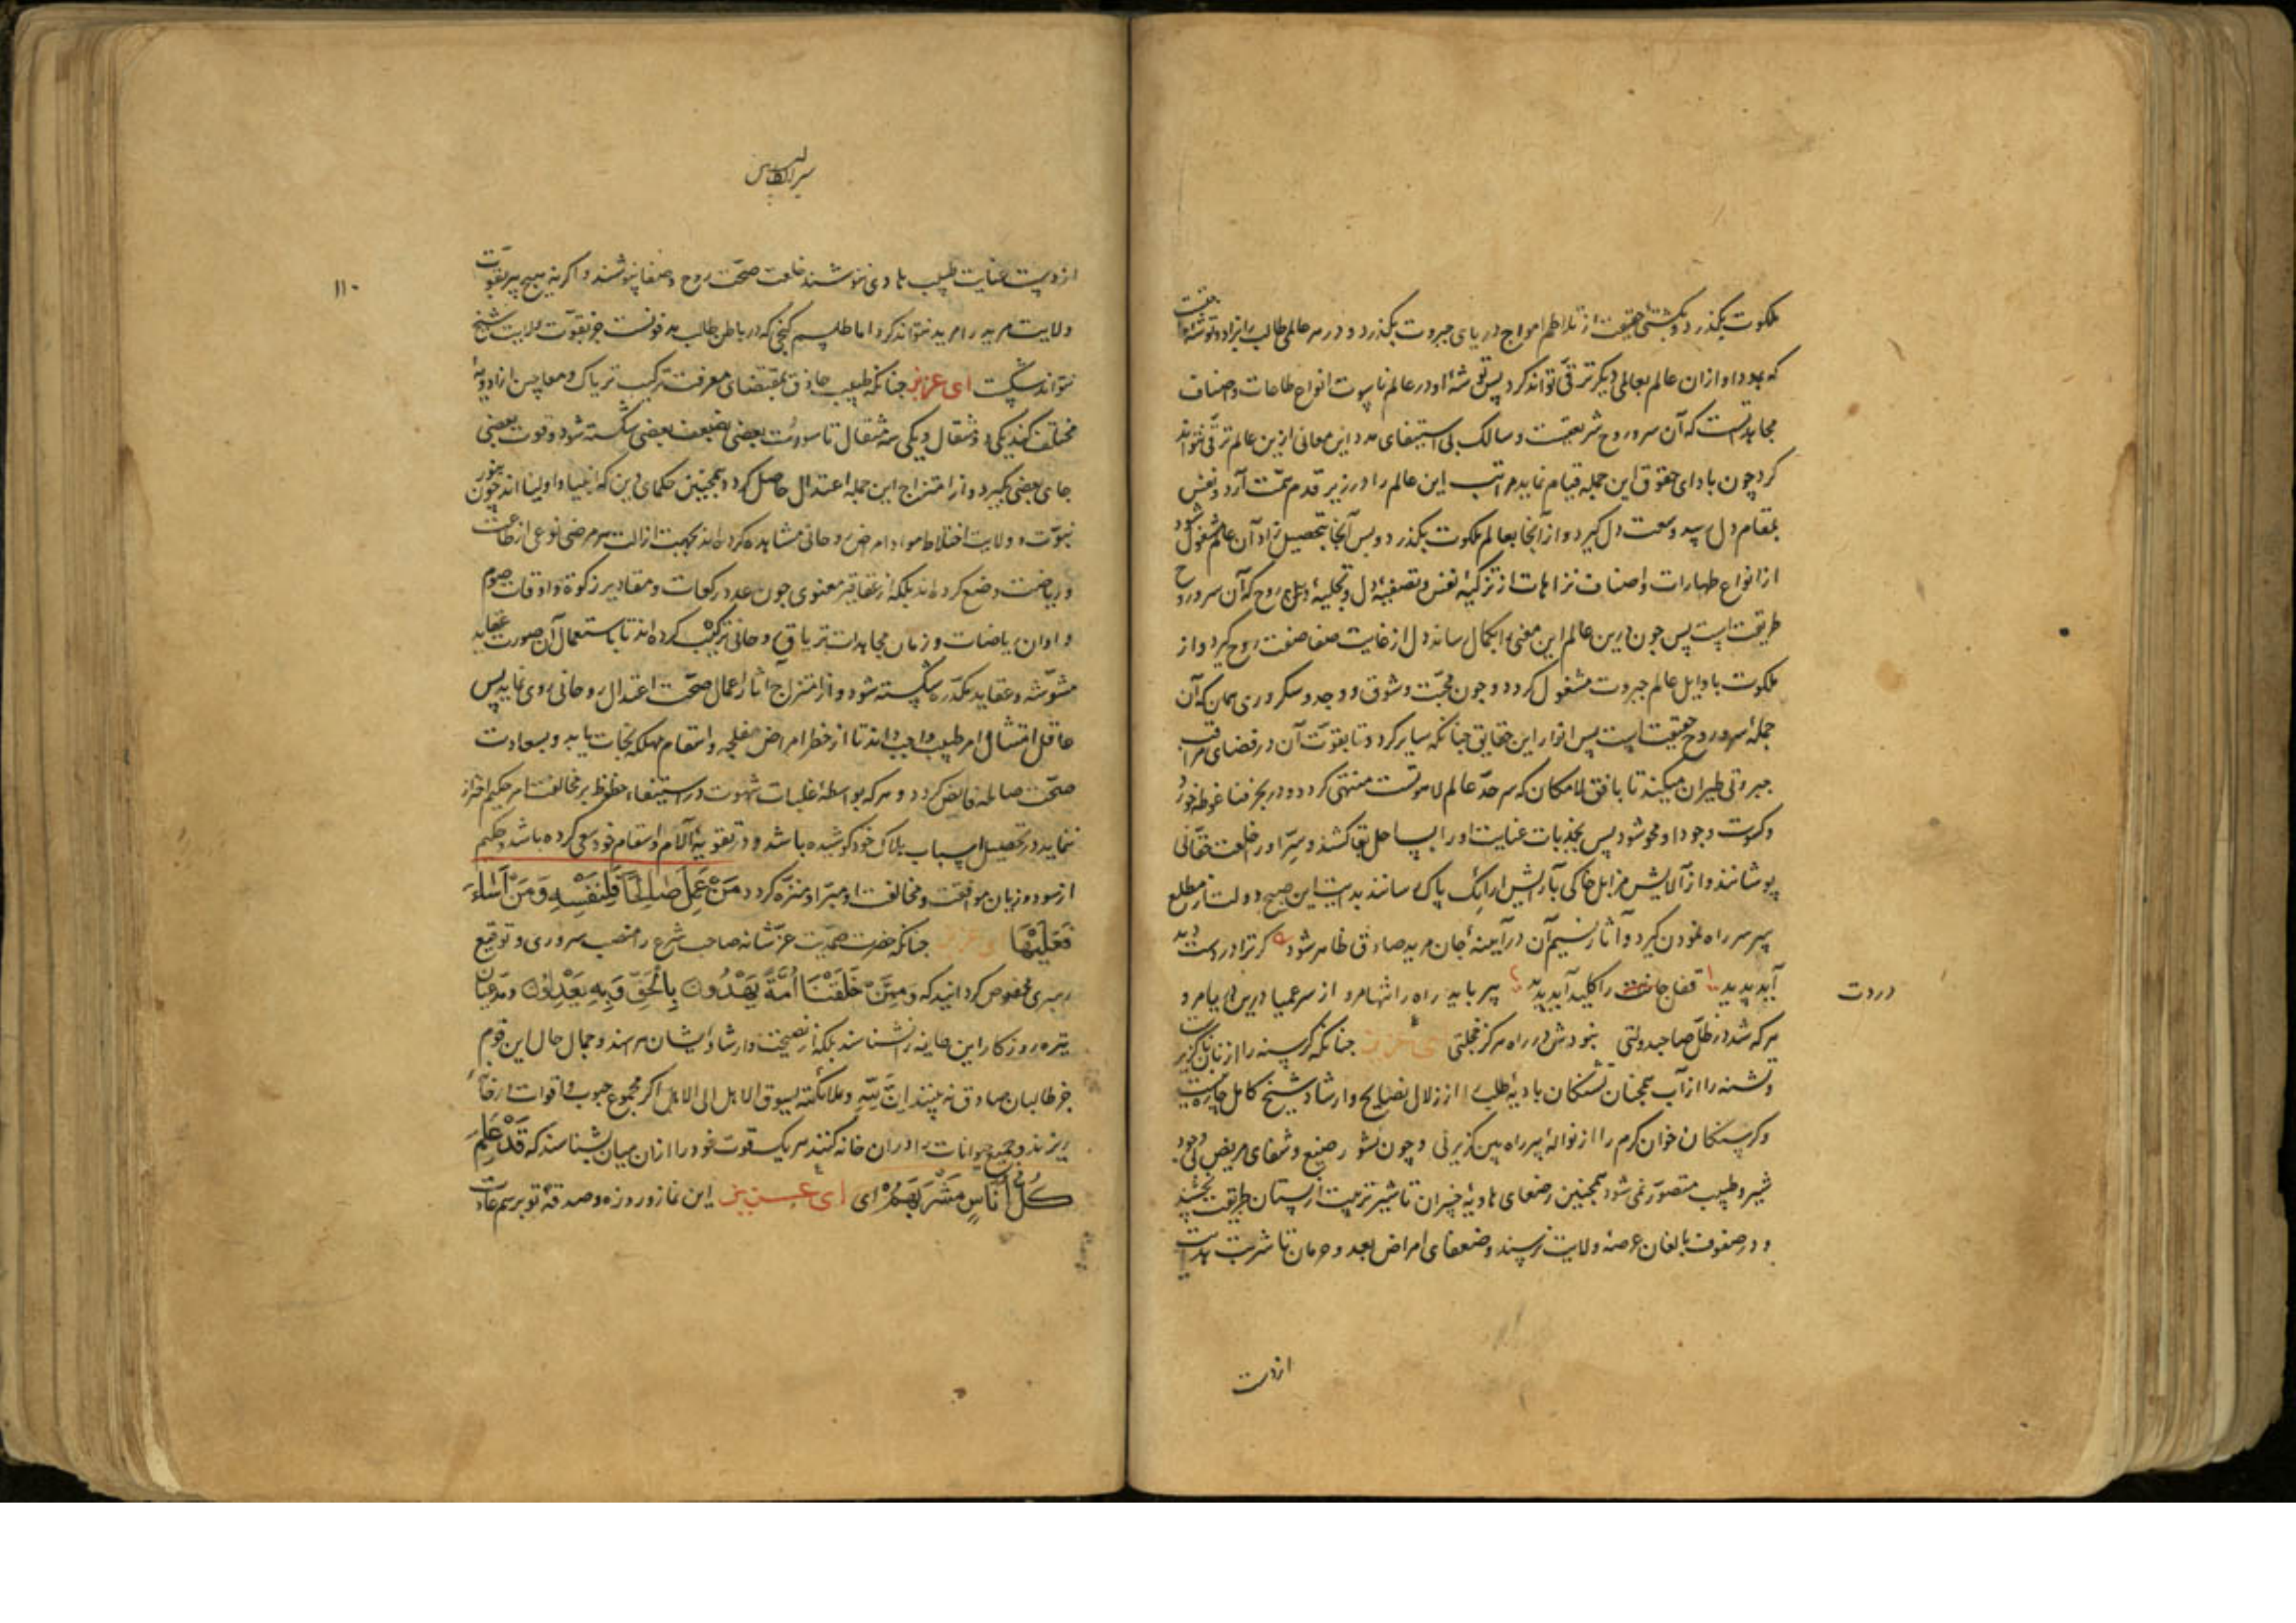 ملکوت بگذرد و بکشتی حقیقت از تلاطم امواج دریای جبروت بگذرد و در هر عالمی طالب را زاد و توشه
که بدو او ازان عالم بعالمی دیگر ترقی تواند کرد پس توشهٔ او در عالم ناسوت انواع طاعات و اصناف
مجاهداتست که آن سر و روح شریعت و سالک بی استیفای مدد این معانی ازین عالم ترقی نتواند
کرد چون بادای حقوق این جمله قیام نماید مراتب این عالم را در زیر قدم همّت آرد و نفس
بمقام دل رسد و سمت دل گیرد و از آنجا بعالم ملکوت بگذرد و پس آنجا بتحصیل زاد آن عالم مشغول شود
از انواع طهارات و اصناف نزاهات از تزکیهٔ نفس و تصفیهٔ دل و تجلیهٔ روح که آن سر و روح
طریقت است پس چون درین عالم این معنی را بکمال رساند دل از غایت صفا صفت روح گیرد و از
ملکوت باوایل عالم جبروت مشغول گردد و چون محبّت و شوق و وجد و سکر و وری همان که آن
جملهٔ سر و روح حقیقت است پس انوار این حقایق چنانکه سایر گردد تا بقوّت آن در فضای مراتب
جبروتی طیران میکند تا بافق لامکان که سر حدّ عالم لاهوتست منتهی گردد و در بحر فنا غوطه خورد
و کسوت وجود او محو شود پس بجذبات عنایت او را بساحل بقا کشند و سرّ او را خلعت حقّانی
پوشانند و از آلایش مزابل خاکی بآرایش ارایک پاک رسانند بدایت این صبح دولت از مطلع
پیر سر راه نمودن گیرد و آثار نسیم آن در آیینهٔ جان مرید صادق ظاهر شود گر ترا دردست دید
آید پدید قفل جانت را کلید آید پدید پیر باید راه را تنها مرو از سر عمیا درین دریا مرو
دردت
هر که شد در ظلّ صاحبدولتی نبودش در راه هرگز خجلتی ای عزیز چنانکه گرسنه را از نان ناگزیرست
و تشنه را از آب همچنان تشنگان بادیهٔ طلب را از زلال نصایح و ارشاد شیخ کامل چاره نیست
و گرسنگان خوان کرم را از نوالهٔ پیر راه بین گزیر نی و چون نشو رضیع و شفای مریض بی وجود
شیر و طبیب متصوّر نمی شود همچنین رضعای هاویهٔ خسران تا شیر تربیت از پستان طریقت نچشند
و در صفوف بالغان عرصهٔ ولایت نرسند و ضعفای امراض بعد و حرمان تا شربت هدایت
از دست
سر الطالبین
۱۱۰
از دست عنایت طبیب هادی ننوشند خلعت صحّت روح و صفا نپوشند و اگر نه هیچ پیر بقوّت
ولایت مرید را مرید نتواند کرد اما طلسم گنجی که در باطن طالب مدفونست جز بقوّت ولایت شیخ
نتواند شکست ای عزیز چنانکه طبیب حاذق بمقتضای معرفت ترکیب تریاک و معاجین از ادویهٔ
مختلف کند یکی دو مثقال و یکی سه مثقال تا سورت بعضی بضعف بعضی شکسته شود و قوت بعضی
جای بعضی بگیرد و از امتزاج این جمله اعتدال حاصل گردد همچنین حکمای دین که انبیا و اولیا اند چون بنور
نبوّت و ولایت اختلاط مواد امراض روحانی مشاهده کرده اند بجهت ازالت هر مرضی نوعی از طاعت
و ریاضت وضع کرده اند بلکه از عقاقیر معنوی چون عدد رکعات و مقادیر زکوة و اوقات صوم
و اوان ریاضات و زمان مجاهدات تریاق روحانی ترکیب کرده اند تا باستعمال آن صورت عقاید
مشوّشه و عقاید مکدّره شکسته شود و از امتزاج آثار اعمال صحّت اعتدال روحانی روی نماید پس
عاقل امتثال امر طبیب واجب داند تا از خطر امراض مفلجه و اسقام مهلکه نجات یابد و بسعادت
صحّت صالحه فایض گردد و هر که بواسطهٔ غلبات شهوت در استیفاء حظوظ بر مخالفت امر حکیم احتراز
ننماید در تحصیل اسباب هلاک خود کوشیده باشد و در تقویهٔ آلام و اسقام خود سعی کرده باشد و حکیم
از سود و زیان موافقت و مخالفت او مبرّا و منزّه گردد مَنْ عَمِلَ صَالِحًا فَلِنَفْسِهِ وَمَنْ أَسَاءَ
فَعَلَيْهَا ای عزیز چنانکه حضرت صمدیّت عزّ شانه صاحب شرع را منصب سروری و توقیع
رهبری مخصوص گردانید که وَمِمَّنْ خَلَقْنَا أُمَّةٌ يَهْدُونَ بِالْحَقِّ وَبِهِ يَعْدِلُونَ و مدعیان
تیره روزگار این طایفه را نشناسند بلکه از نصیحت و ارشاد ایشان هراسند و جمال حال این قوم
جز طالبان صادق نه بینند اِنَّ لِلّٰهِ ملائکته یسوق الاهل الی الاهل اگر مجموع حبوب و اقوات را
ریزند و جمیع حیوانات را در ان خانه کنند هر یک قوت خود را از ان میان بشناسند که قَدْ عَلِمَ
كُلُّ أُنَاسٍ مَشْرَبَهُمْ ای ای عزیز این نماز و روزه و صدقهٔ تو برسم عادت